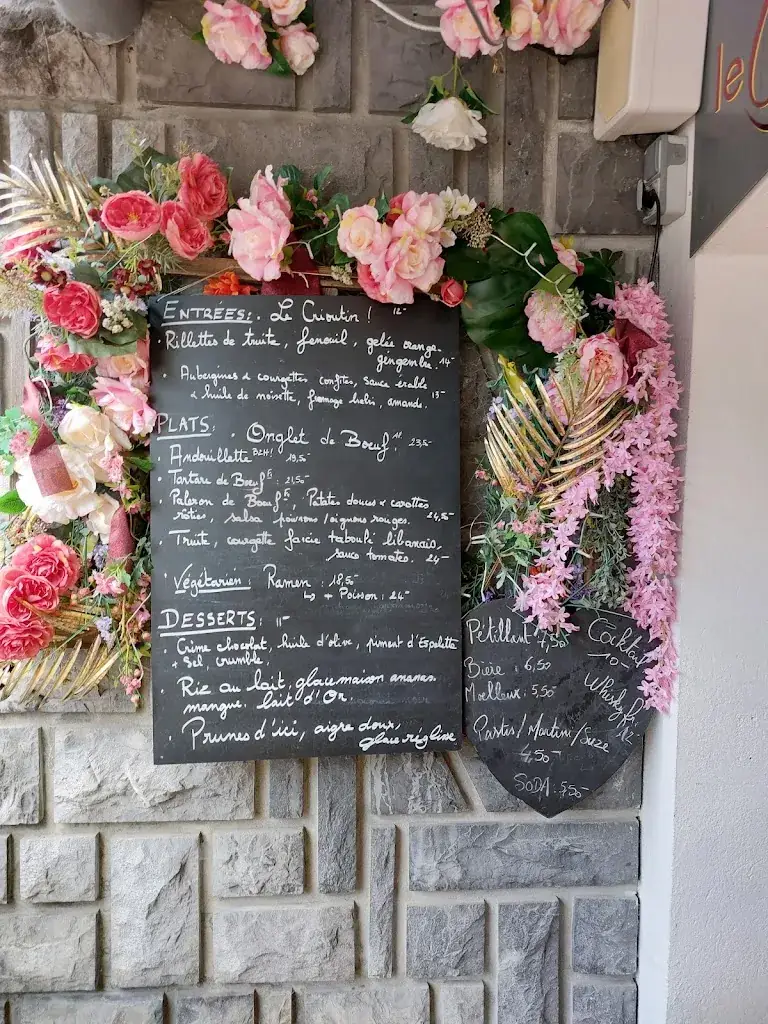 ENTRÉES: Le Crioutin ! 12-
• Rillettes de truite, fenouil, gelée orange
gingembre. 14-
• Aubergines & courgettes confites, sauce
& huile de noisette, fromage brebis, amande. 13-
PLATS: • Onglet de Bœuf 23,50-
Andouillette 19,50-
• Tartare de Bœuf : 21,50-
• Paleron de Bœuf, Patates douces & carottes
rôties, salsa poivrons / oignons rouges. 24,50-
• Truite, courgette farcie taboulé libanais,
sauce tomates. 24-
• Végétarien Ramen : 18,50-
↳ + Poisson : 24-
DESSERTS: 11-
• Crème chocolat, huile d'olive, piment d'Espelette
+ Sel, crumble.
• Riz au lait, glace maison ananas
mangue, lait d'Or.
• Prunes d'ici, aigre doux,
glace réglisse
Pétillant 7,50
Cocktail
10-
Bière : 6,50
Moelleux : 5,50
Whisky
12-
Pastis / Martini / Suze
4,50-
SODA : 5,50-
le